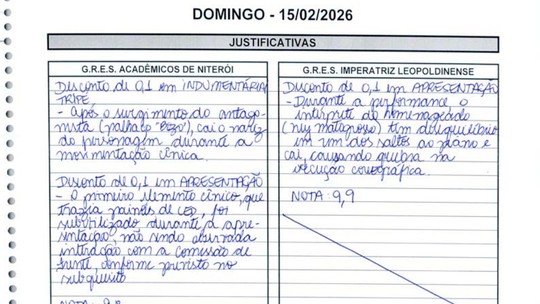 DOMINGO - 15/02/2026
JUSTIFICATIVAS
G.R.E.S. ACADÊMICOS DE NITERÓI
Desconto de 0,1 em INDUMENTÁRIA
TRIPÉ,
- Após o surgimento do antago-
nista (palhaço "Bozo"), cai o nariz
do personagem durante a
movimentação cênica.
Desconto de 0,1 em APRESENTAÇÃO
- O primeiro elemento cênico, que
trazia painéis de LED, foi
subutilizado durante a apre-
sentação, não sendo observada
interação com a Comissão de
frente, conforme previsto no
subquesito
NOTA: 9,8
G.R.E.S. IMPERATRIZ LEOPOLDINENSE
Desconto de 0,1 em APRESENTAÇÃO
- Durante a performance, o
intérprete do homenageado
(Ney matogrosso) tem desequilíbrio
em um dos saltos ao plano e
cai, causando quebra na
execução coreográfica.
NOTA: 9,9